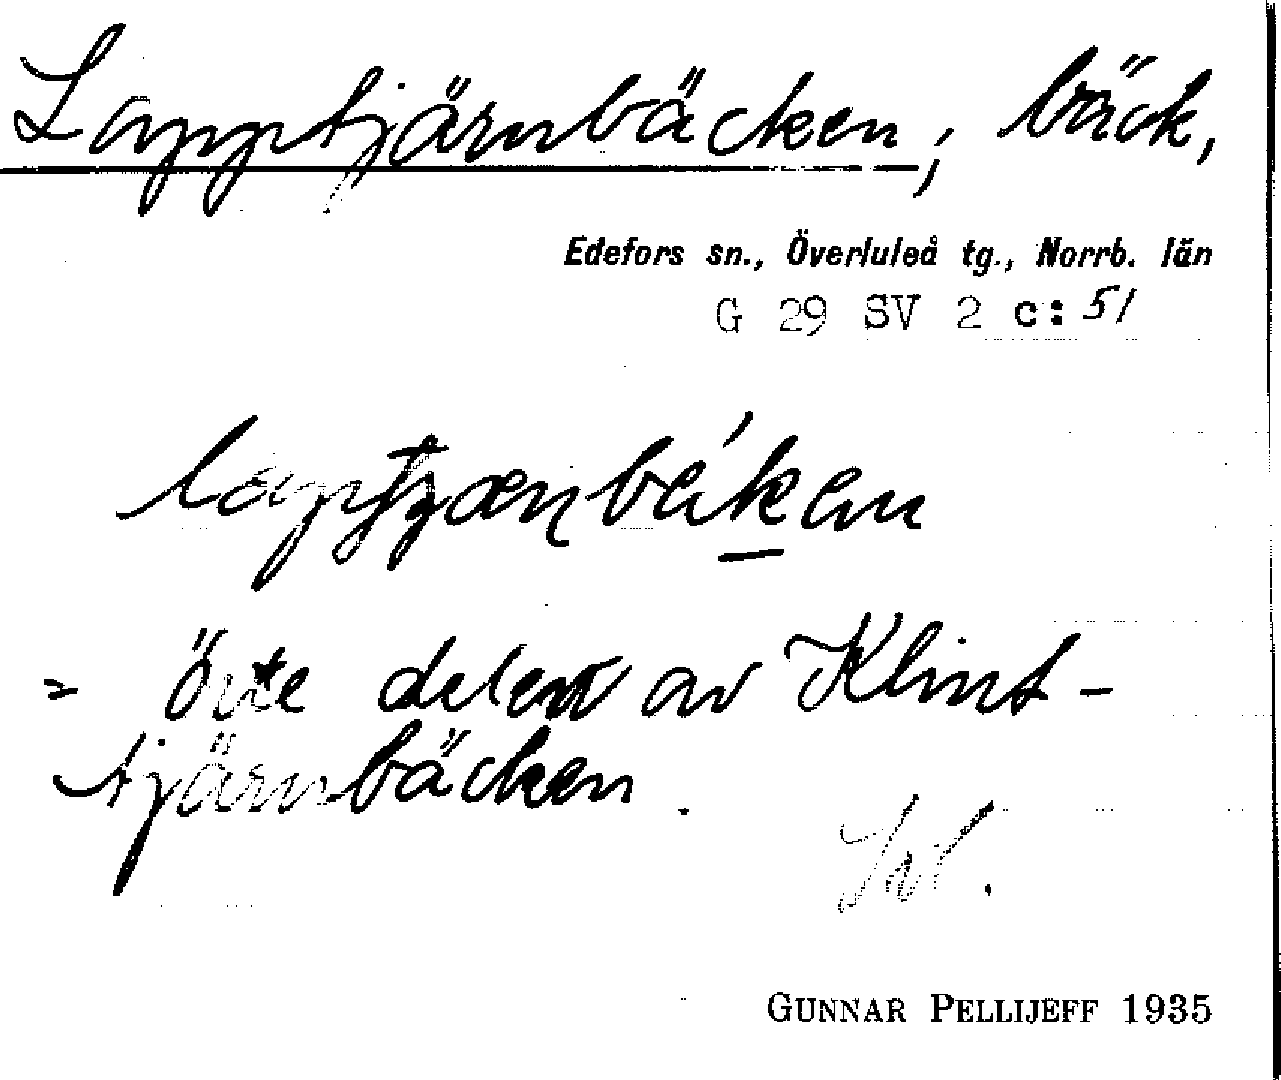 Lapptjärnbäcken, bäck,
Edefors sn., Överluleå tg., Norrb. län
G 29 SV 2 c: 51
= övre delen av Klint-
tjärnbäcken.
GUNNAR PELLIJEFF 1935